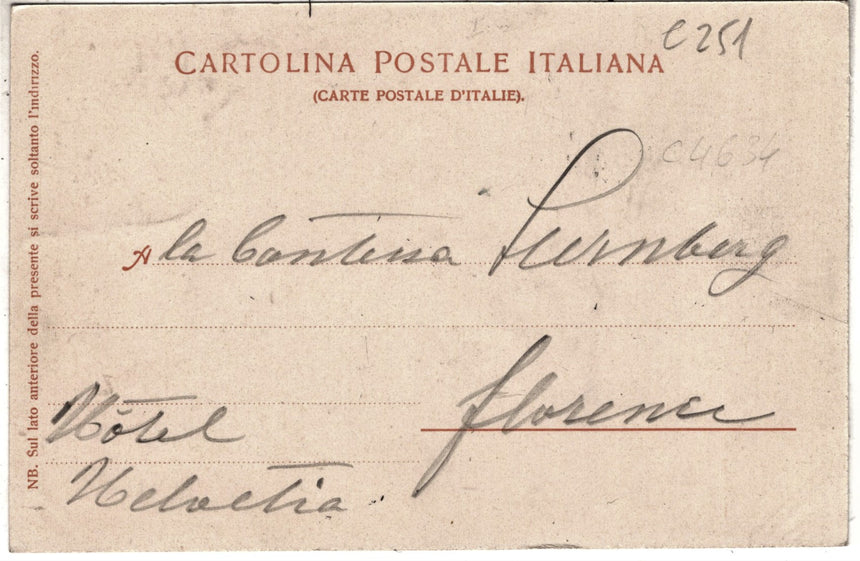 C 251
CARTOLINA POSTALE ITALIANA
(CARTE POSTALE D'ITALIE).
C4634
A la Contessa
Florence
Hôtel
Helvetia
NB. Sul lato anteriore della presente si scrive soltanto l'indirizzo.